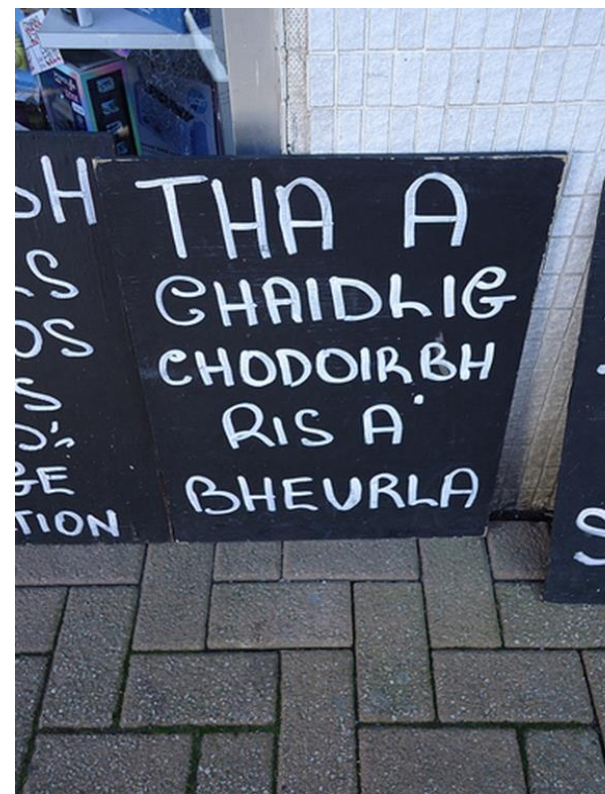 SH
S
OS
S
D's
GE
TION
THA A
GHAIDLIG
CHODOIRBH
RIS A'
BHEURLA
S